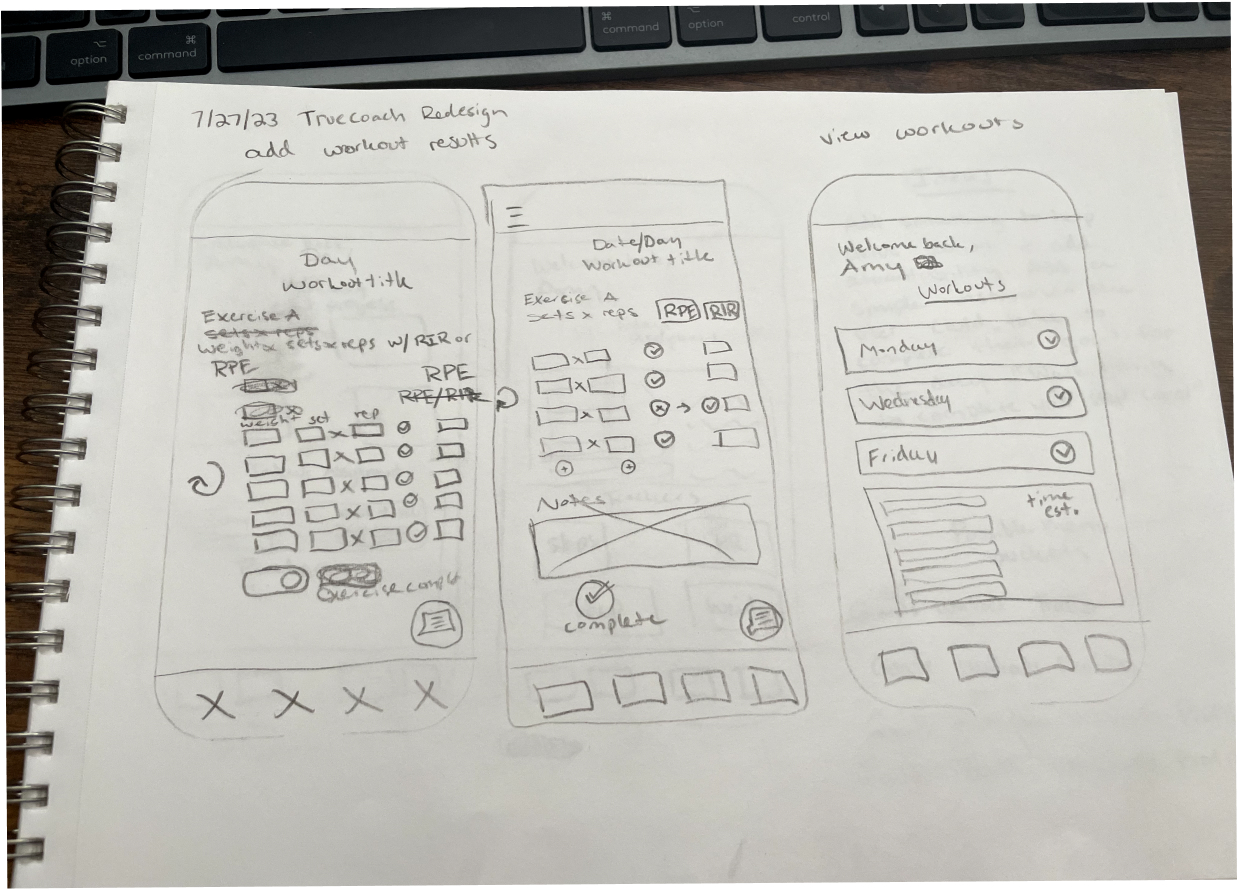 ⌥
option
⌘
command
⌘
command
⌥
option
control
7/27/23 Truecoach Redesign
add workout results
view workouts
Day
Workout title
Exercise A
sets x reps
weight x sets x reps w/ RIR or
RPE
RPE
RPE/RIR
weight set rep
x
x
x
x
x
exercise complet
X X X X
Date/Day
Workout title
Exercise A
sets x reps RPE RIR
x
x
x
x
Notes
complete
Welcome back,
Amy
Workouts
Monday
Wednesday
Friday
time
est.